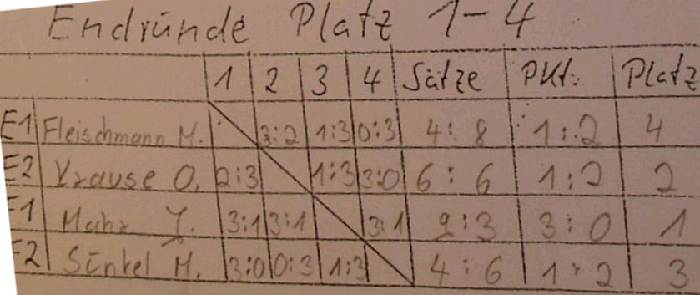 Endrunde Platz 1-4
1 2 3 4 Sätze Pkt: Platz
E1 Fleischmann M. 3:2 1:3 0:3 4:8 1:2 4
E2 Krause O. 2:3 1:3 3:0 6:6 1:2 2
E1 3:1 3:1 3:1 9:3 3:0 1
E2 Sünkel M. 3:0 0:3 1:3 4:6 1:2 3